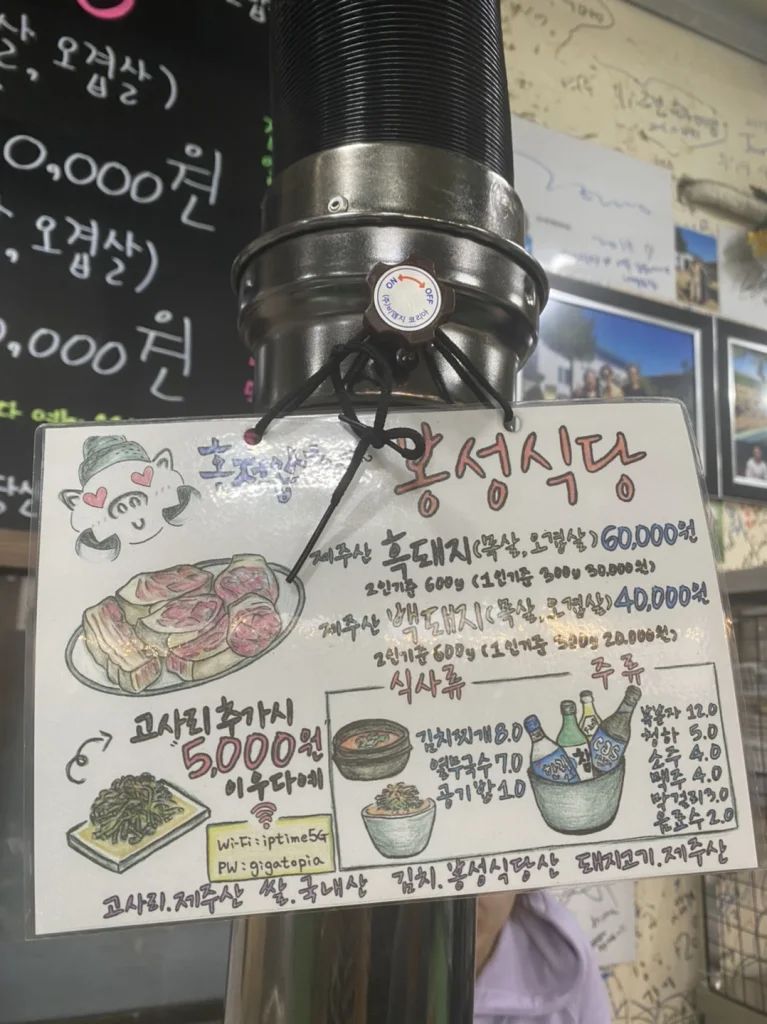 오겹살)
0,000원
오겹살)
0,000원
ON OFF
봉성식당
제주산 흑돼지(목살,오겹살) 60,000원
2인기준 600g (1인기준 300g 30,000원)
제주산 백돼지(목살,오겹살) 40,000원
2인기준 600g (1인기준 300g 20,000원)
고사리 추가시
5,000원
이우다예
Wi-Fi : iptime5G
PW : gigatopia
식사류
김치찌개 8.0
열무국수 7.0
공기밥 1.0
주류
복분자 12.0
청하 5.0
소주 4.0
맥주 4.0
막걸리 3.0
음료수 2.0
고사리.제주산 쌀.국내산 김치.봉성식당산 돼지고기.제주산